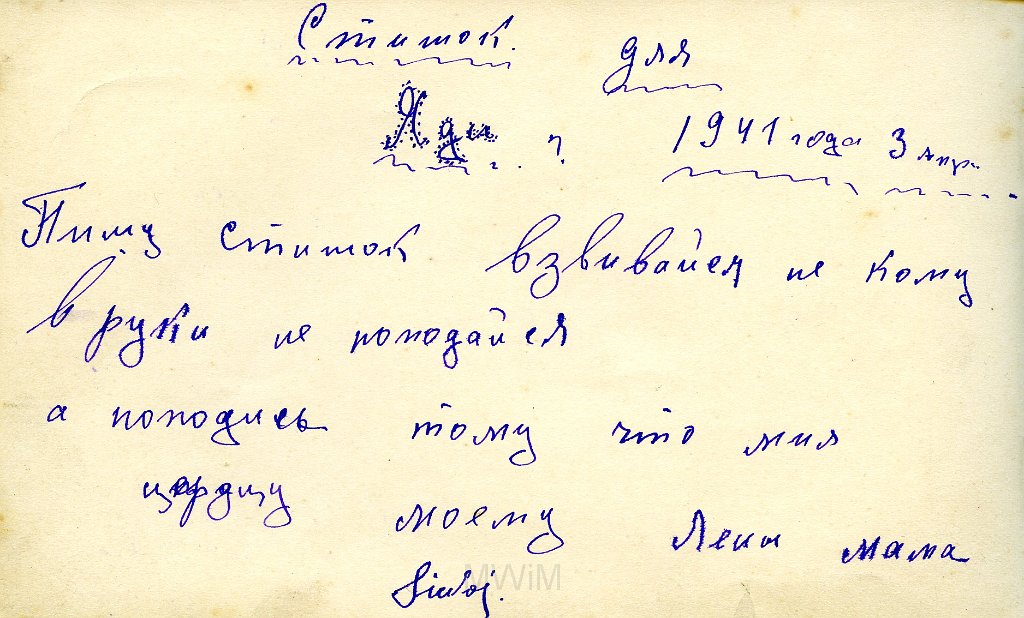 Стишок. для
Яди. ? 1941 года 3 апр.
Пишу стишок взвивайся не кому
в руки не поподайся
а поподись тому что мил
сердцу моему Лены мама
MWiM